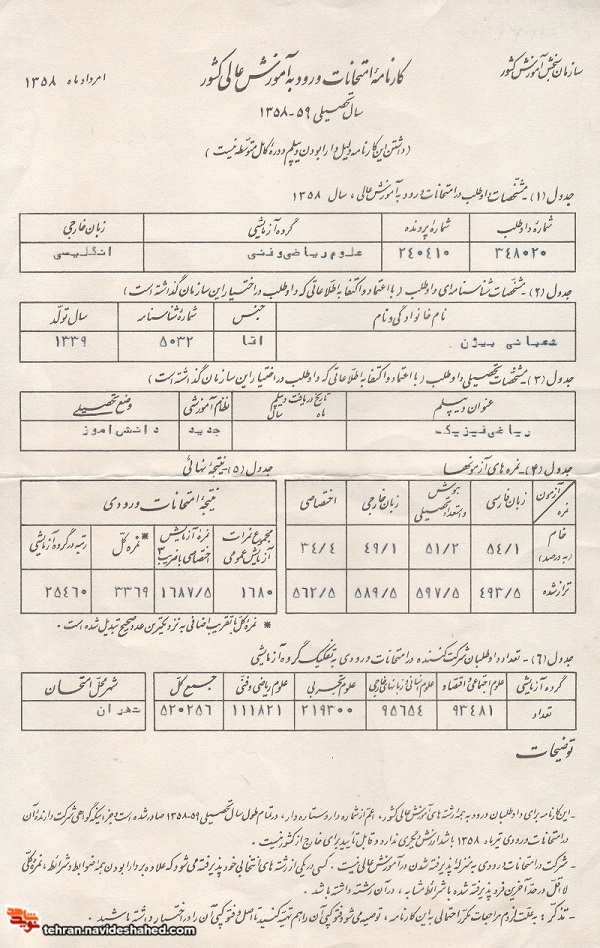 سازمان سنجش آموزش کشور
کارنامهٔ امتحانات ورود به آموزش عالی کشور
امرداد ماه ۱۳۵۸
سال تحصیلی ۵۹-۱۳۵۸
(داشتن این کارنامه دلیل دارا بودن دیپلم دورهٔ کامل متوسطه نیست)
جدول (۱)- مشخصات داوطلب در امتحانات ورود به آموزش عالی، سال ۱۳۵۸
شمارهٔ داوطلب شمارهٔ پرونده گروه آزمایشی زبان خارجی
۳۴۸۰۲۰ ۲۴۰۴۱۰ علوم ریاضی و فنی انگلیسی
جدول (۲)- مشخصات شناسنامه‌ای داوطلب (با اعتماد و اکتفا به اطلاعاتی که داوطلب در اختیار این سازمان گذاشته است)
نام خانوادگی و نام جنس شمارهٔ شناسنامه سال تولد
شعبانی بیژن . اقا ۵۰۳۲ ۱۳۳۹
جدول (۳)- مشخصات تحصیلی داوطلب (با اعتماد و اکتفا به اطلاعاتی که داوطلب در اختیار این سازمان گذاشته است)
عنوان دیپلم تاریخ دریافت دیپلم ماه سال نظام آموزشی وضع تحصیلی
ریاضی فیزیک جدید دانش اموز
جدول (۴)- نمره های آزمونها
آزمون نمره زبان فارسی هوش و استعداد تحصیلی زبان خارجی اختصاصی
خام (به درصد) ۵۴/۱ ۵۱/۲ ۴۹/۱ ۳۴/۴
تراز شده ۴۹۳/۵ ۵۹۷/۵ ۵۸۹/۵ ۵۶۲/۵
جدول (۵)- نتیجهٔ نهائی
نتیجهٔ امتحانات ورودی
مجموع نمرات آزمایش عمومی نمرهٔ آزمایش اختصاصی با ضریب ۳ نمرهٔ کل* رتبه در گروه آزمایشی
۱۶۸۰ ۱۶۸۷/۵ ۳۳۶۹ ۲۵۴۶۰
* نمرهٔ کل با تقریب اضافی به نزدیکترین عدد صحیح تبدیل شده است.
جدول (۶)- تعداد داوطلبان شرکت کننده در امتحانات ورودی به تفکیک گروه آزمایشی
گروه آزمایشی علوم اجتماعی و اقتصاد علوم انسانی و زبانهای خارجی علوم تجربی علوم ریاضی و فنی جمع کل شهر محل امتحان
تعداد ۹۳۴۸۱ ۹۵۶۵۴ ۲۱۹۳۰۰ ۱۱۱۸۲۱ ۵۲۰۲۵۶ تهران
توضیحات
- این کارنامه برای داوطلبان ورود به همهٔ رشته های آموزش عالی کشور، اعم از شماره دار و ستاره دار، در تمام طول سال تحصیلی ۵۹-۱۳۵۸ صادر شده است و جز اینکه گواهی شرکت دارندهٔ آن
در امتحانات ورودی تیرماه ۱۳۵۸ باشد ارزش دیگری ندارد و قابل تأیید برای خارج از کشور نیست.
- شرکت در امتحانات ورودی به منزلهٔ پذیرفته شدن در آموزش عالی نیست. کسی در یکی از رشته های انتخابی خود پذیرفته می شود که علاوه بر دارا بودن همهٔ ضوابط و شرائط، نمرهٔ کل
لااقل در حد آخرین فرد پذیرفته شده با شرائط مشابه، در آن رشته داشته باشد.
- تذکر: به علت لزوم مراجعات مکرر احتمالی با این کارنامه، توصیه می شود فتوکپی آن را هم تهیه کنید تا اصل و فتوکپی آن را در اختیار داشته باشید.
tehran.navideshahed.com